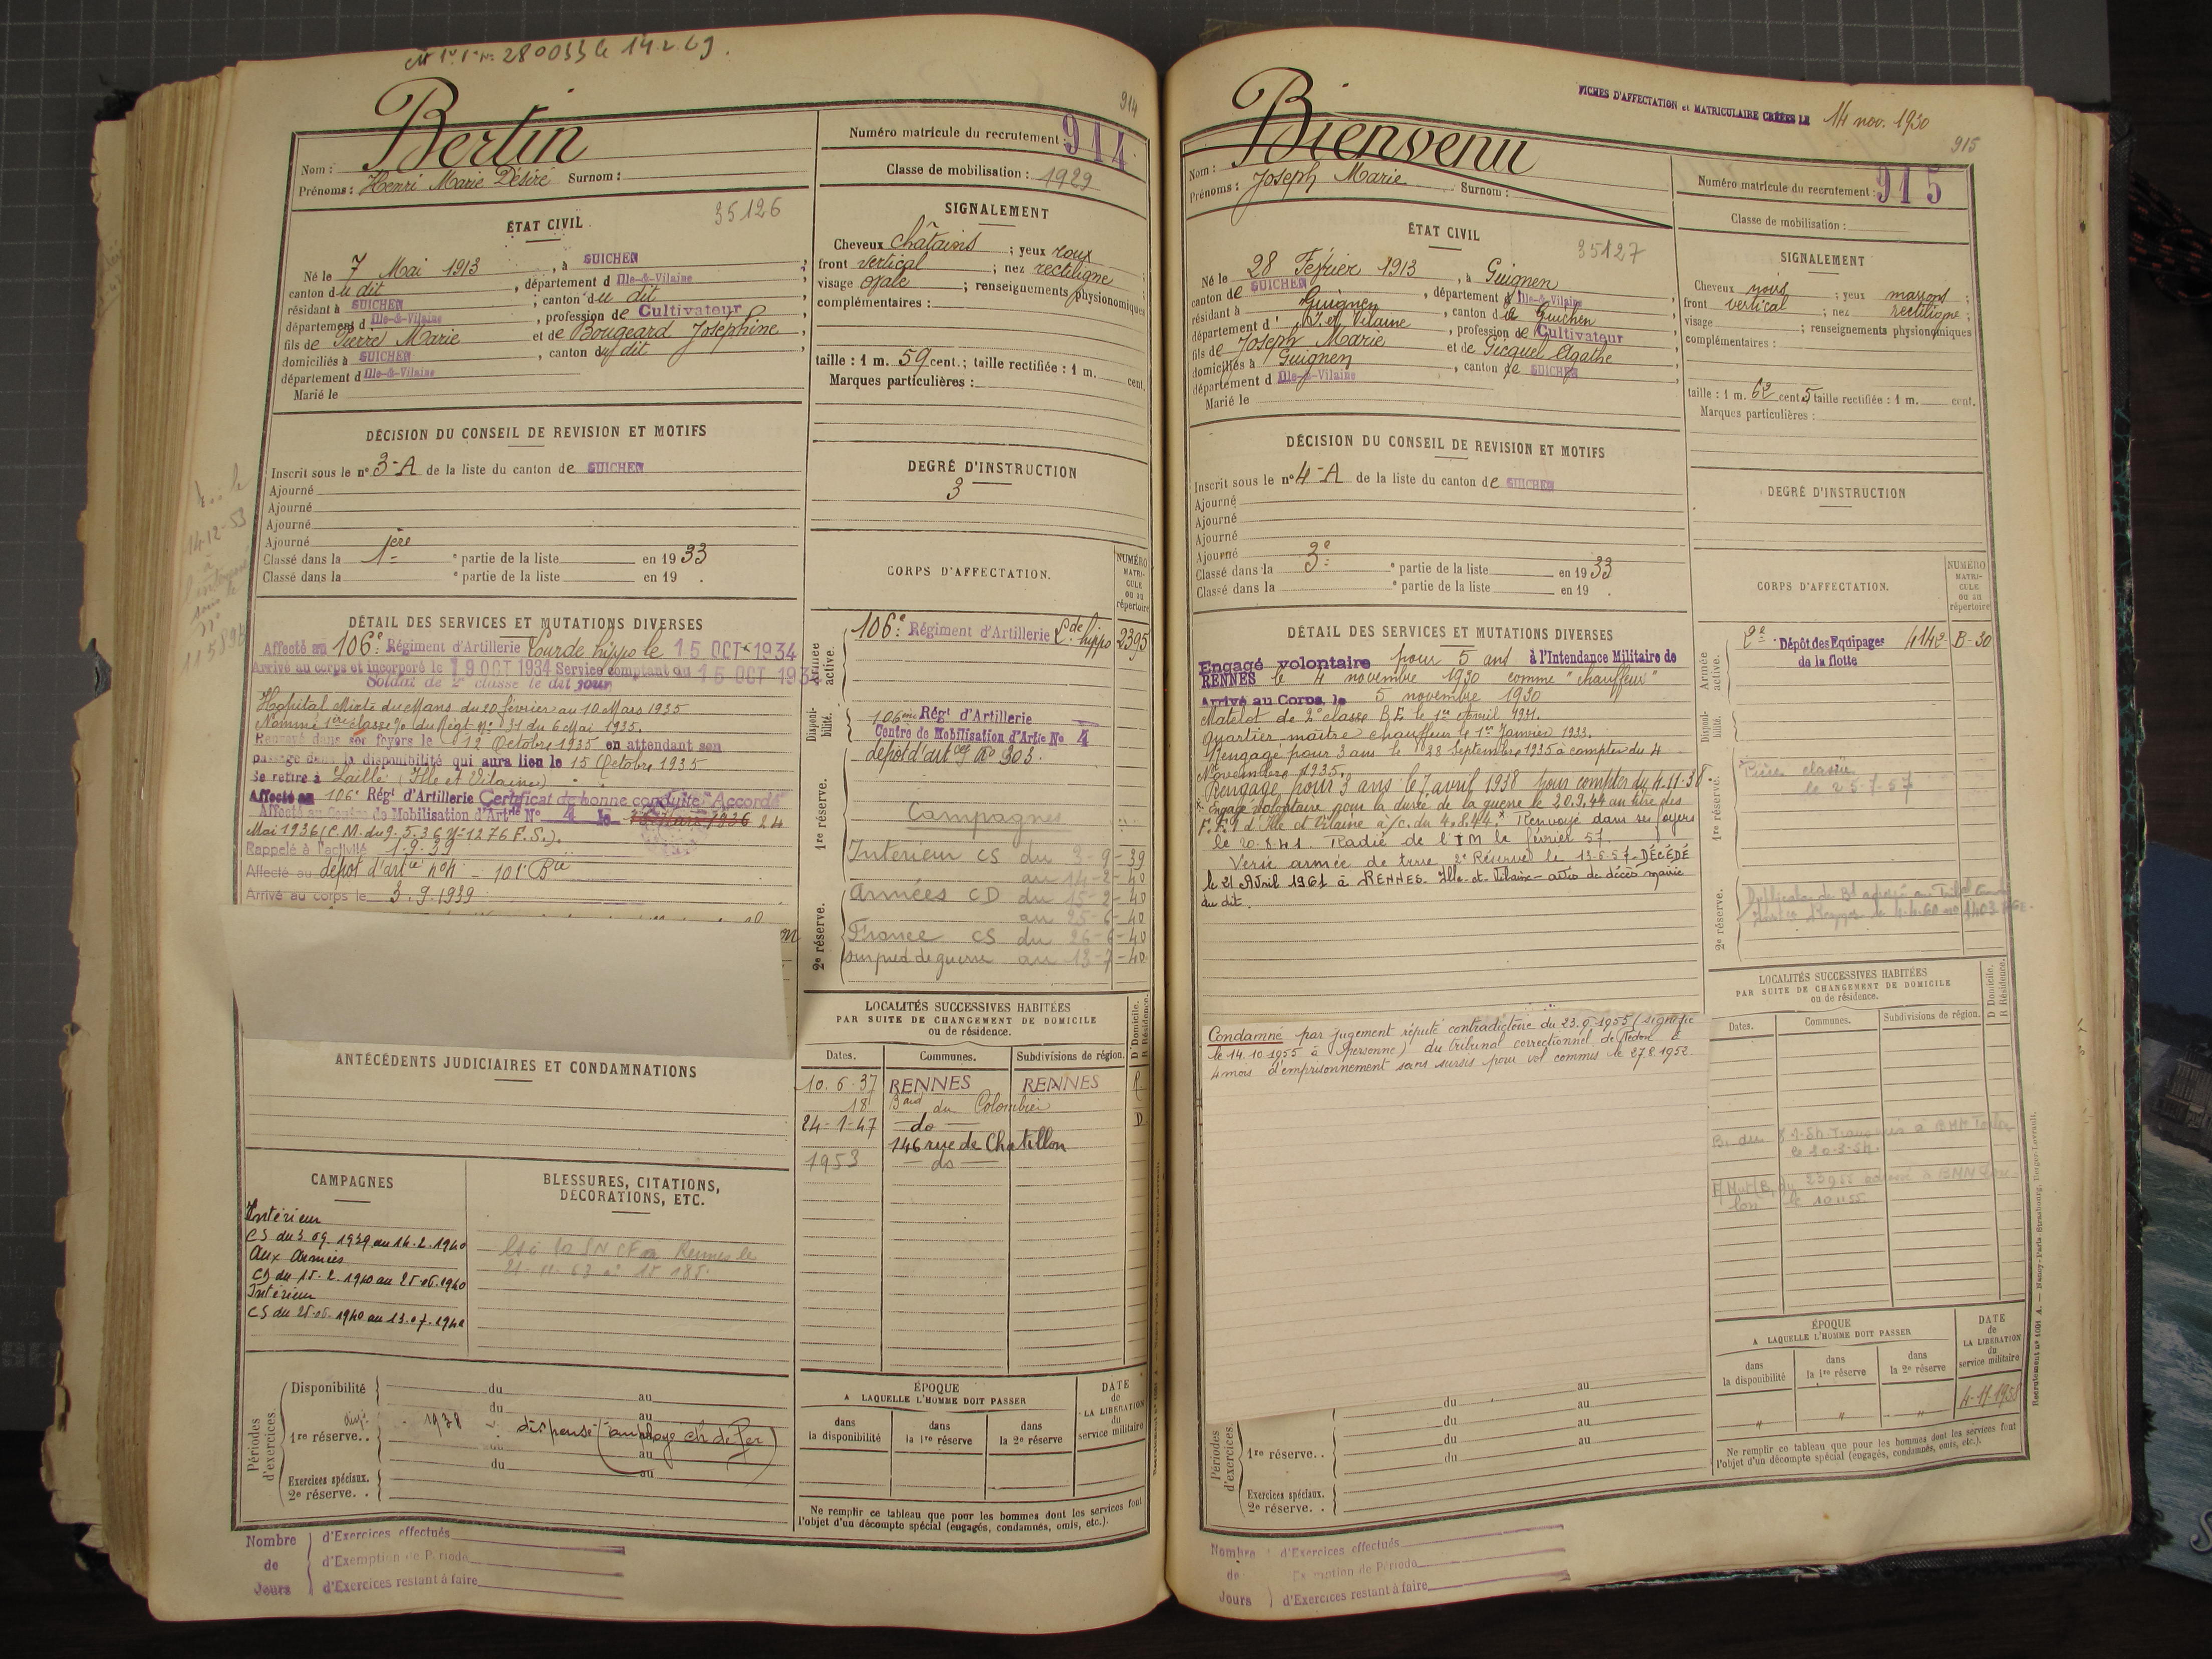 914
Bertin
Nom :
Prénoms : Henri Marie Désiré Surnom :
Numéro matricule du recrutement : 914
Classe de mobilisation : 1929
ÉTAT CIVIL
35126
Né le 7 Mai 1913, à GUICHEN
canton du dit, département d Ille-&-Vilaine
résidant à GUICHEN ; canton du dit
département d Ille-&-Vilaine, profession de Cultivateur
fils de Pierre Marie et de Bougeard Joséphine
domiciliés à GUICHEN, canton du dit
département d Ille-&-Vilaine
Marié le
SIGNALEMENT
Cheveux châtains ; yeux roux
front vertical ; nez rectiligne
visage ovale ; renseignements physionomiques
complémentaires :
taille : 1 m. 59 cent. ; taille rectifiée : 1 m. cent.
Marques particulières :
DÉCISION DU CONSEIL DE REVISION ET MOTIFS
Inscrit sous le n° 3-A de la liste du canton de GUICHEN
Ajourné
Ajourné
Ajourné
Ajourné
Classé dans la 1ère partie de la liste en 1933
Classé dans la e partie de la liste en 19 .
DEGRÉ D'INSTRUCTION
3
DÉTAIL DES SERVICES ET MUTATIONS DIVERSES
Affecté au 106e Régiment d'Artillerie Lourde hippo le 15 OCT 1934
Arrivé au corps et incorporé le 19 OCT 1934 Service comptant du 15 OCT 193
Soldat de 2e classe le dit jour
Hopital Mixte du Mans du 20 février au 10 Mars 1935
Nommé 1ère classe % du Régt N° 31 du 6 Mai 1935.
Renvoyé dans ses foyers le 12 Octobre 1935 en attendant son
passage dans la disponibilité qui aura lieu le 15 Octobre 1935
Se retire à Laillé (Ille et Vilaine)
Affecté au 106e Régt d'Artillerie Certificat de bonne conduite "Accordé
Affecté au Centre de Mobilisation d'Artrie N° 4 le 24
Mai 1936 (C.M. du 9.5.36 N° 1276 F.S.).
Rappelé à l'activité 1.9.39
Affecté au dépot d'artie n°4 - 101e Bie
Arrivé au corps le 3.9.1939
CORPS D'AFFECTATION.
NUMÉRO MATRICULE ou au répertoire
Armée active.
106e Régiment d'Artillerie Lde hippo 2395
Disponibilité.
106ème Régt d'Artillerie
Centre de Mobilisation d'Artie No 4
dépot d'art n° 303.
1re réserve.
Campagnes
Intérieur CS du 3-9-39
au 14-2-40
Armées CD du 15-2-40
au 25-6-40
2e réserve.
France CS du 26-6-40
sur pied de guerre au 13-7-40
LOCALITÉS SUCCESSIVES HABITÉES
PAR SUITE DE CHANGEMENT DE DOMICILE
ou de résidence.
D Domicile. R Résidence.
Dates. Communes. Subdivisions de région.
10.6.37 RENNES RENNES R
18 Bard du Colombier
24-1-47 do D
146 rue de Chatillon
1953 do
ANTÉCÉDENTS JUDICIAIRES ET CONDAMNATIONS
CAMPAGNES
Intérieur
CS du 3.09.1939 au 14.2.1940
Aux Armées
CD du 15.2.1940 au 25.06.1940
Intérieur
CS du 26.06.1940 au 13.07.1940
BLESSURES, CITATIONS,
DÉCORATIONS, ETC.
Périodes d'exercices.
Disponibilité du au
du au
1re réserve. . 1938 dispensé (employé ch de fer)
du au
Exercices spéciaux.
2e réserve. .
ÉPOQUE
A LAQUELLE L'HOMME DOIT PASSER
dans la disponibilité
dans la 1re réserve
dans la 2e réserve
DATE de LA LIBÉRATION du service militaire
Ne remplir ce tableau que pour les hommes dont les services font
l'objet d'un décompte spécial (engagés, condamnés, omis, etc.).
Nombre de Jours
d'Exercices effectués
d'Exemption de Période
d'Exercices restant à faire
FICHES D'AFFECTATION et MATRICULAIRE CRÉÉES LE 14 nov. 1930
915
Bienvenu
Nom :
Prénoms : Joseph Marie Surnom :
Numéro matricule du recrutement : 915
Classe de mobilisation :
ÉTAT CIVIL
35127
Né le 28 Février 1913, à Guignen
canton de GUICHEN, département d Ille-&-Vilaine
résidant à Guignen, canton de Guichen
département d' I. et Vilaine, profession de Cultivateur
fils de Joseph Marie et de Gicquel Agathe
domiciliés à Guignen, canton de GUICHEN
département d Ille-&-Vilaine
Marié le
SIGNALEMENT
Cheveux noirs ; yeux marrons ;
front vertical ; nez rectiligne ;
visage ; renseignements physionomiques
complémentaires :
taille : 1 m. 62 cent 5 taille rectifiée : 1 m. cent.
Marques particulières :
DÉCISION DU CONSEIL DE REVISION ET MOTIFS
Inscrit sous le n° 4-A de la liste du canton de GUICHEN
Ajourné
Ajourné
Ajourné
Ajourné
Classé dans la 3e partie de la liste en 1933
Classé dans la e partie de la liste en 19 .
DEGRÉ D'INSTRUCTION
DÉTAIL DES SERVICES ET MUTATIONS DIVERSES
Engagé volontaire pour 5 ans à l'Intendance Militaire de
RENNES le 4 novembre 1930 comme "chauffeur"
Arrivé au Corps, le 5 novembre 1930
Matelot de 2e classe B.E le 1er Avril 1931.
Quartier maître chauffeur le 1er Janvier 1933.
Rengagé pour 3 ans le 28 Septembre 1935 à compter du 4
Novembre 1935.
Rengagé pour 3 ans le 7 avril 1938 pour compter du 4.11.38.
x Engagé volontaire pour la durée de la guerre le 20.9.44 au titre des
F.F.I d'Ille et Vilaine a/c. du 4.8.44. x Renvoyé dans ses foyers
le 20.8.41. Radié de l'IM le février 57.
Versé armée de terre 2e Réserve le 13-6-57. DÉCÉDÉ
le 21 Avril 1961 à RENNES. Ille-et-Vilaine - avis de décès mairie
du dit.
CORPS D'AFFECTATION.
NUMÉRO MATRICULE ou au répertoire
Armée active.
2e Dépôt des Equipages 4142 B-30
de la flotte
Disponibilité.
1re réserve.
Pièce classée
le 25-7-57
2e réserve.
Condamné par jugement réputé contradictoire du 23.9.1955 (signifié
le 14.10.1955 à personne) du tribunal correctionnel de Redon à
4 mois d'emprisonnement sans sursis pour vol commis le 27.8.1952.
LOCALITÉS SUCCESSIVES HABITÉES
PAR SUITE DE CHANGEMENT DE DOMICILE
ou de résidence.
D Domicile. R Résidence.
Dates. Communes. Subdivisions de région.
le 10-3-54.
Périodes d'exercices.
du au
du au
1re réserve. . du au
du au
Exercices spéciaux.
2e réserve. .
ÉPOQUE
A LAQUELLE L'HOMME DOIT PASSER
dans la disponibilité
dans la 1re réserve
dans la 2e réserve
DATE de LA LIBÉRATION du service militaire
" " "
Ne remplir ce tableau que pour les hommes dont les services font
l'objet d'un décompte spécial (engagés, condamnés, omis, etc.).
Nombre de Jours
d'Exercices effectués
Exemption de Période
d'Exercices restant à faire